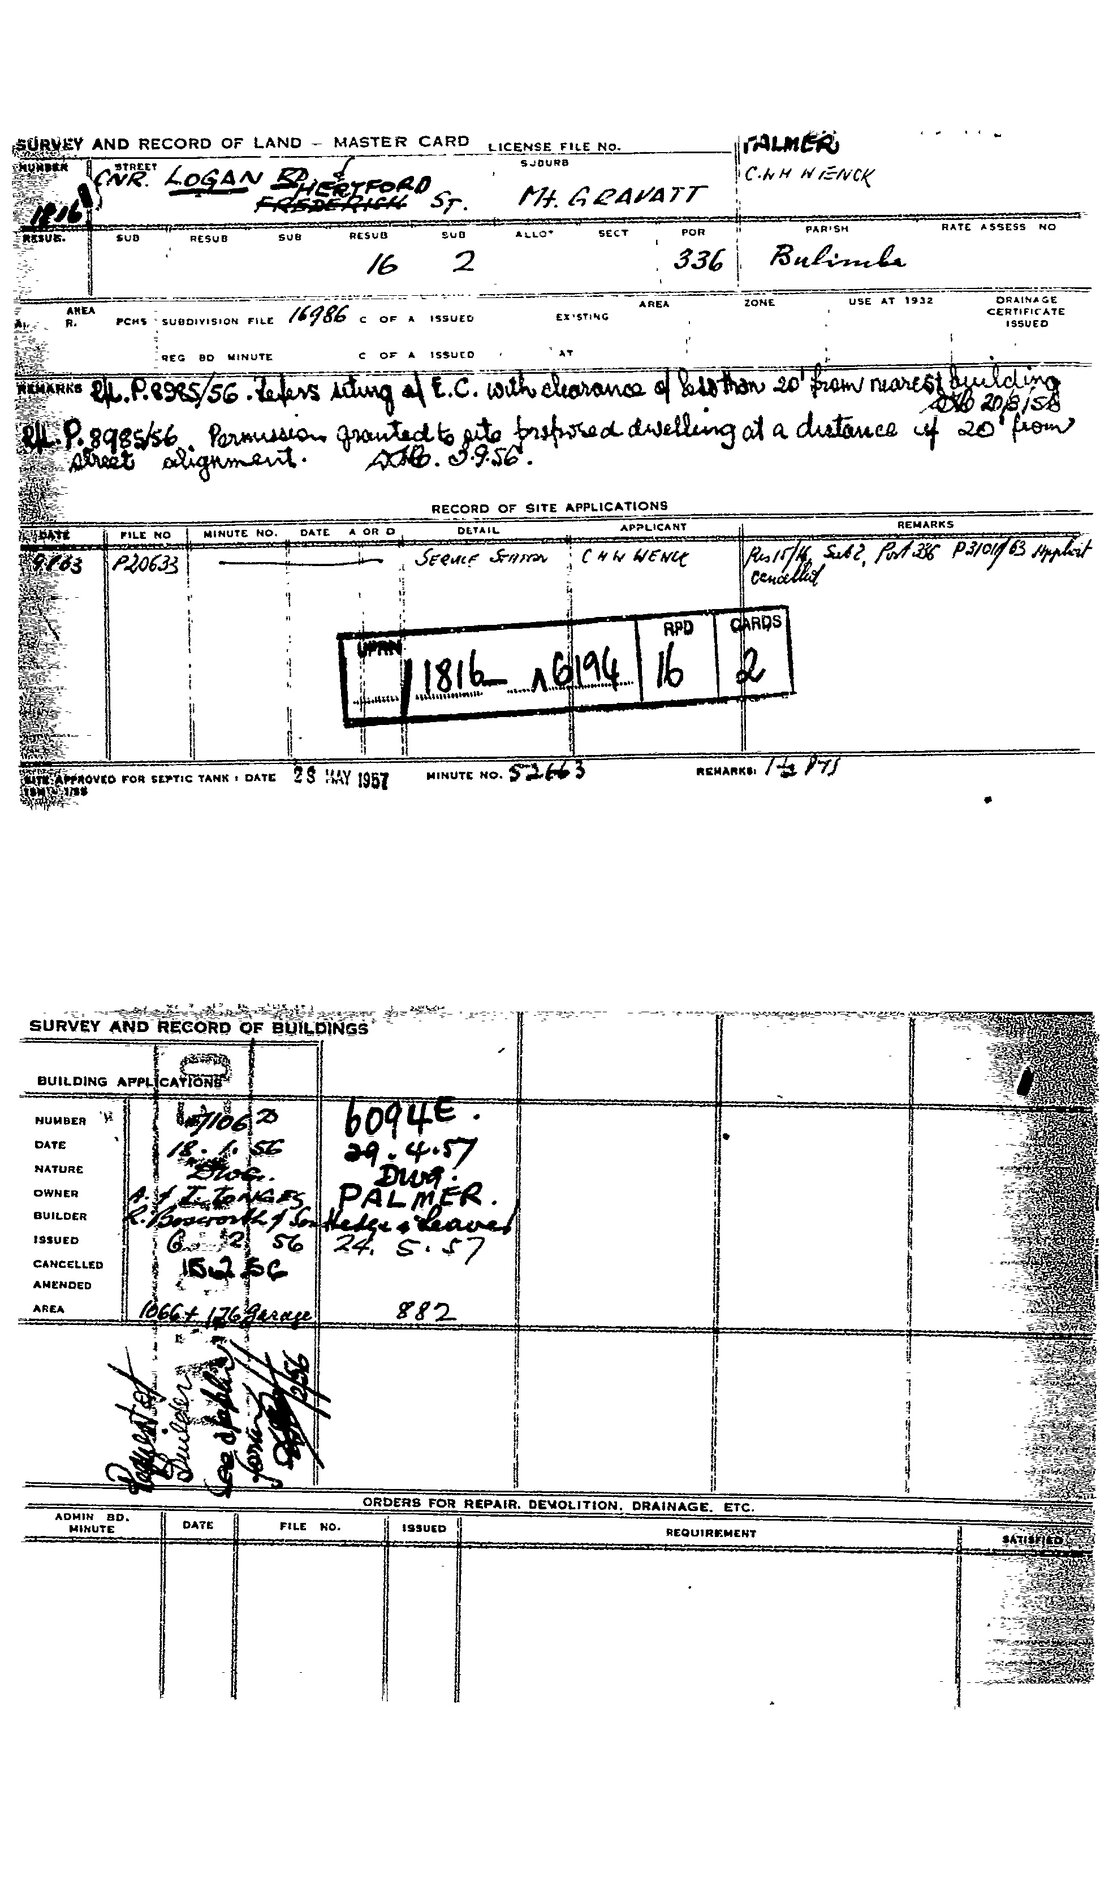 SURVEY AND RECORD OF LAND - MASTER CARD LICENSE FILE NO. PALMER
NUMBER STREET SUBURB C.WH WENCK
CNR. LOGAN RD &
HERTFORD
1816 FREDERICH ST. Mt. GRAVATT
RESUB. SUB RESUB SUB RESUB SUB ALLOT SECT POR PARISH RATE ASSESS NO
16 2 336 Bulimba
AREA AREA ZONE USE AT 1932 DRAINAGE
A. R. PCHS SUBDIVISION FILE 16986 C OF A ISSUED EXISTING CERTIFICATE
ISSUED
REG BD MINUTE C OF A ISSUED AT
REMARKS P.8985/56. Refers siting of E.C. with clearance of less than 20' from nearest building
20/8/56
P.8985/56. Permission granted to site proposed dwelling at a distance of 20' from
street alignment. 3.9.56.
RECORD OF SITE APPLICATIONS
DATE FILE NO MINUTE NO. DATE A OR D DETAIL APPLICANT REMARKS
P20633 SERVICE STATION C H W WENCK Res 15/16, Sub 2, Por 336 Applicat
cancelled
UPRN RPD CARDS
1816 6194 16 2
SITE APPROVED FOR SEPTIC TANK : DATE 23 MAY 1957 MINUTE NO. 52663 REMARKS:
SURVEY AND RECORD OF BUILDINGS
BUILDING APPLICATIONS
NUMBER 6094E.
DATE 18.1.56 29.4.57
NATURE Dwg. Dwg.
OWNER PALMER.
BUILDER R. Bosworth & Son Hedge & Leaves
ISSUED 56 24.5.57
CANCELLED 15.2.56
AMENDED
AREA 1066 + 176 garage 882
Request of
Builder
ORDERS FOR REPAIR, DEMOLITION, DRAINAGE, ETC.
ADMIN BD. MINUTE DATE FILE NO. ISSUED REQUIREMENT SATISFIED